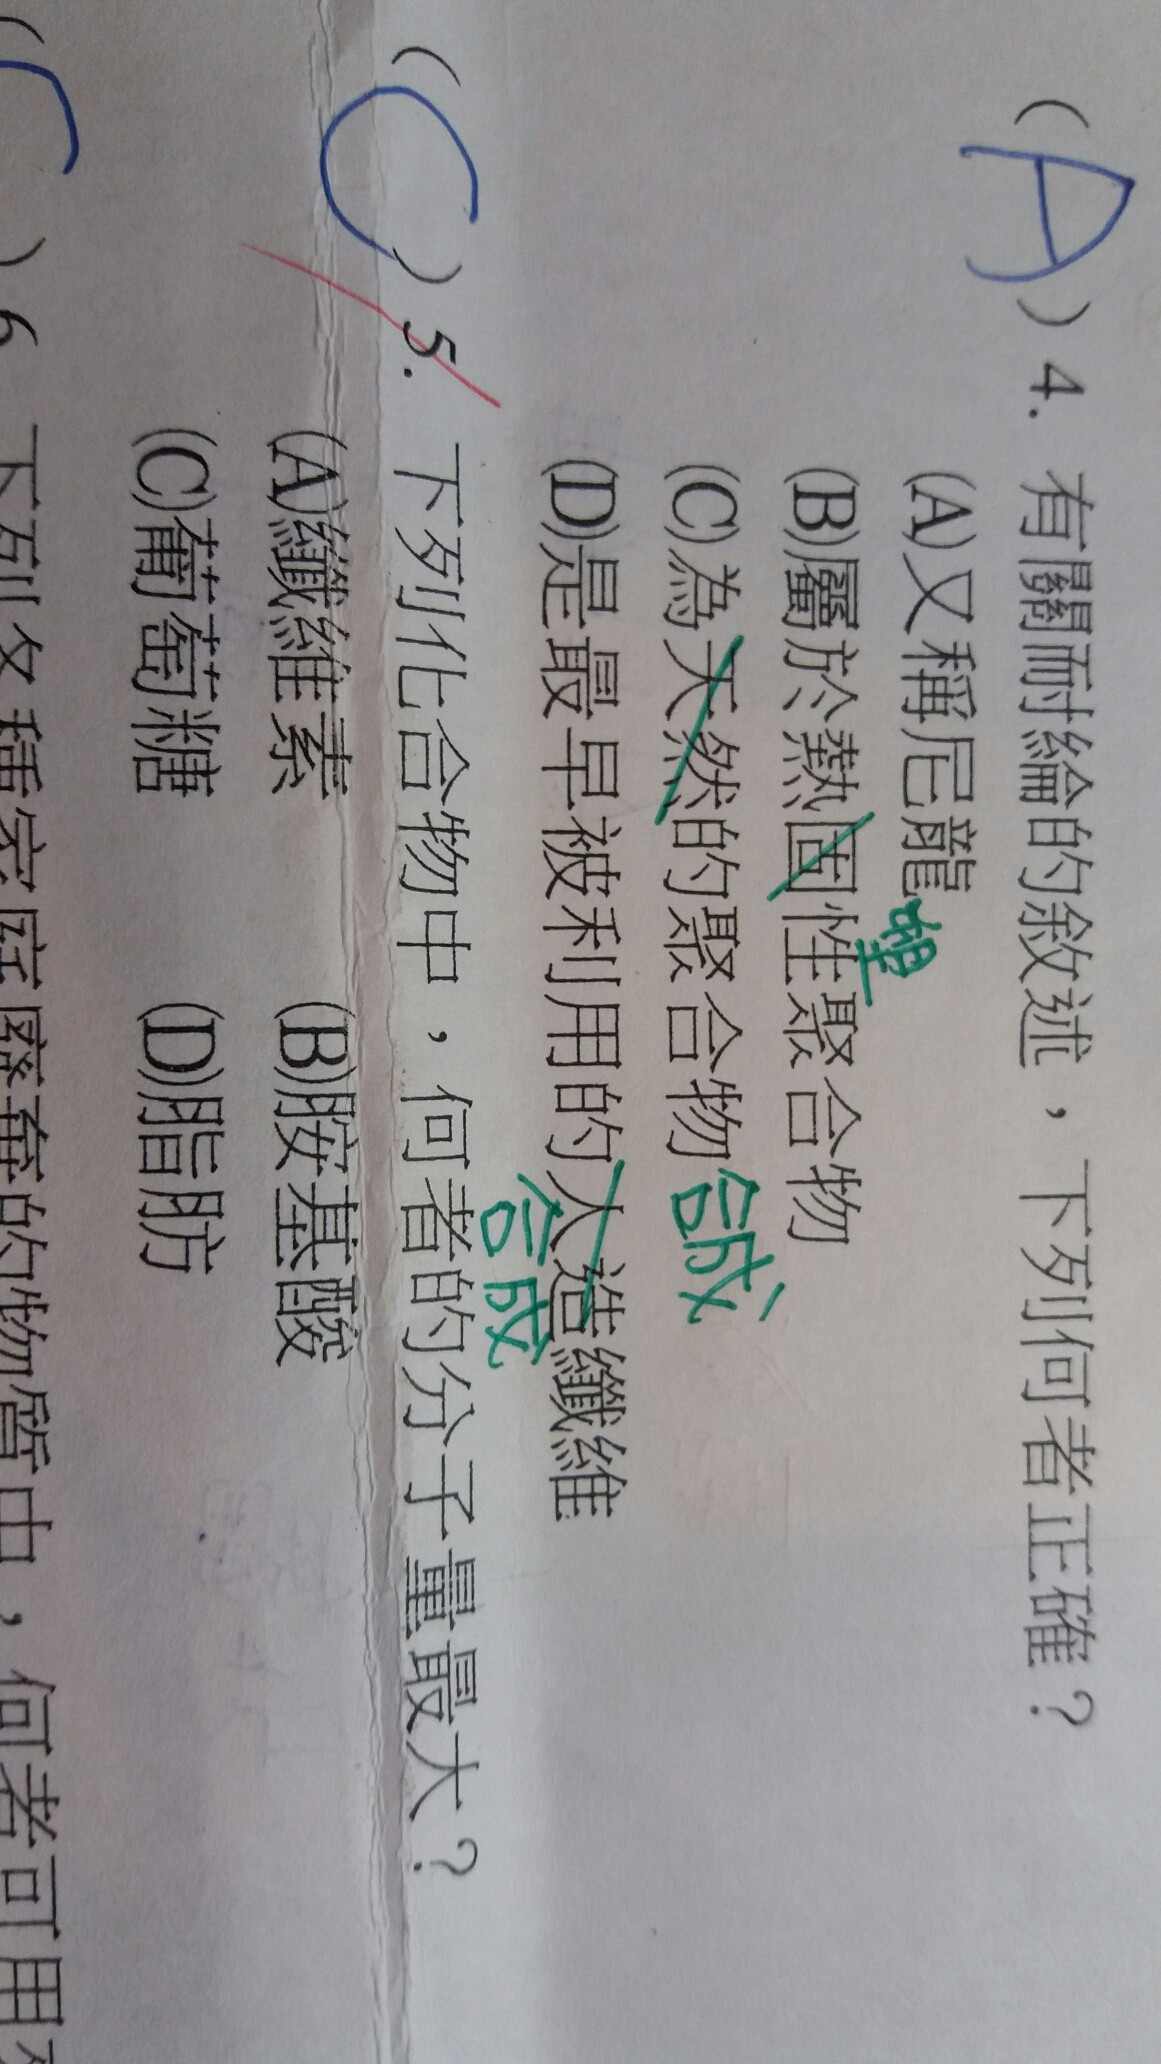 (A)4. 有關耐綸的敘述，下列何者正確？
(A)又稱尼龍
(B)屬於熱固性聚合物
塑
(C)為天然的聚合物 合成
(D)是最早被利用的人造纖維
合成
(C)5. 下列化合物中，何者的分子量最大？
(A)纖維素 (B)胺基酸
(C)葡萄糖 (D)脂肪
(C)6. 下列各種家庭廢棄的物質中，何者可用